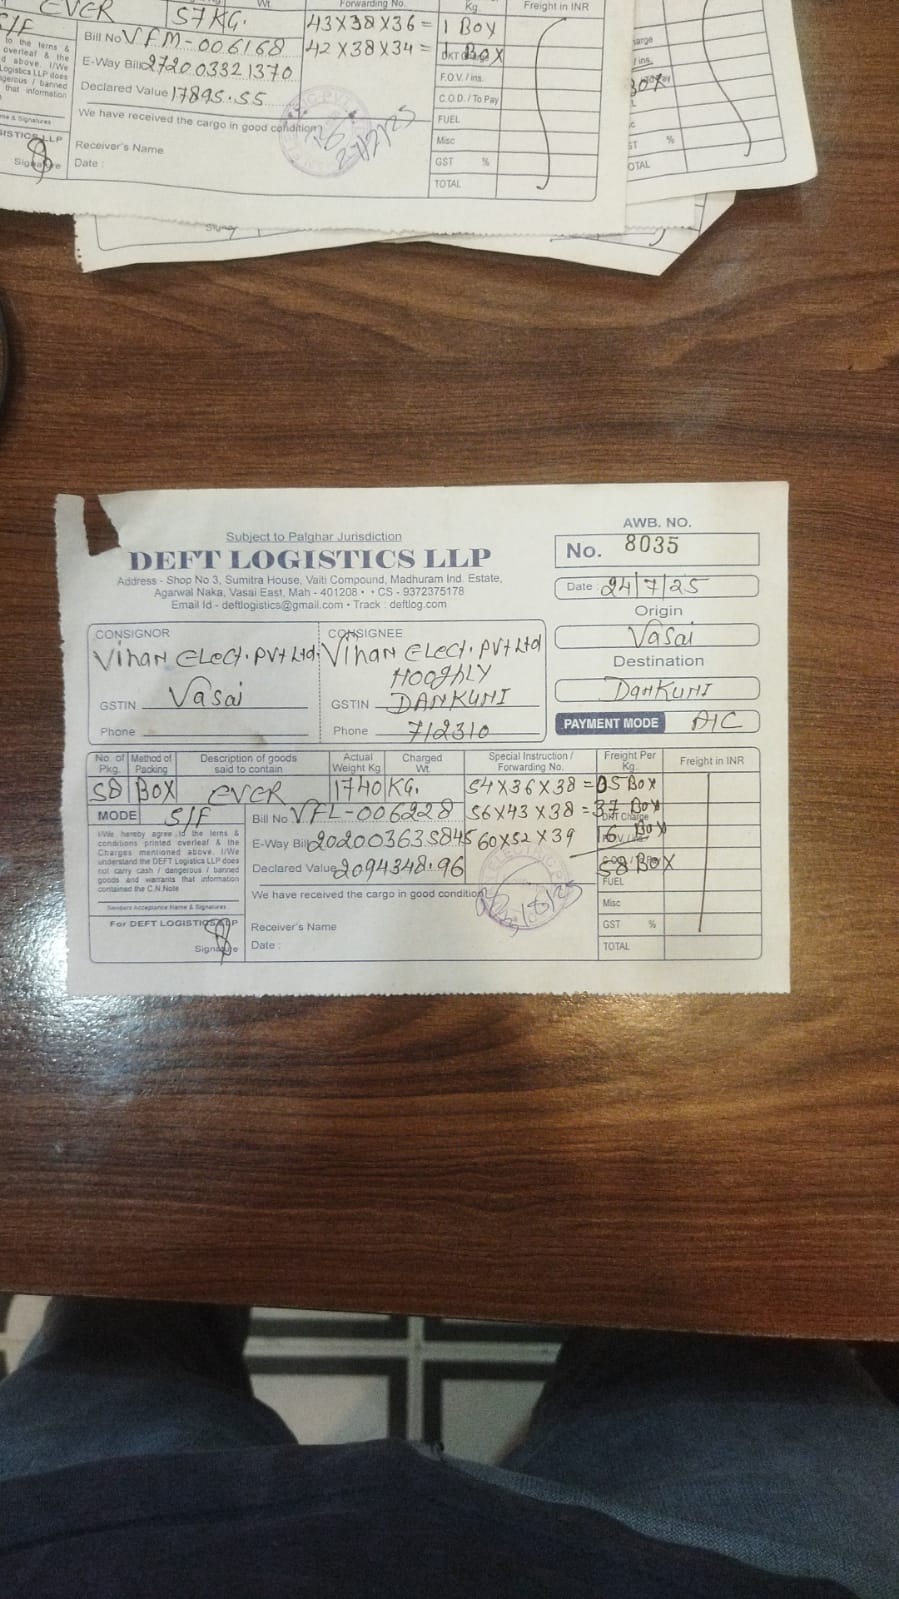 EVER
57KG.
Wt.
Forwarding No.
Kg.
Freight in INR
S/F
43X38X36= 1 BOX
Bill No VFM-006168
42X38X34= 1 BOX
E-Way Bill 272003321370
F.O.V. / ins.
Declared Value 17895.55
C.O.D. / To Pay
We have received the cargo in good condition
FUEL
Misc
Receiver's Name
GST %
Date :
TOTAL
Subject to Palghar Jurisdiction
DEFT LOGISTICS LLP
Address - Shop No 3, Sumitra House, Vaiti Compound, Madhuram Ind. Estate,
Agarwal Naka, Vasai East, Mah - 401208 • • CS - 9372375178
Email Id - deftlogistics@gmail.com • Track : deftlog.com
AWB. NO.
No. 8035
Date : 24/7/25
Origin
Vasai
Destination
DANKUNI
PAYMENT MODE A/C
CONSIGNOR
Vihan Elect. Pvt Ltd.
GSTIN Vasai
Phone
CONSIGNEE
Vihan Elect. Pvt Ltd
HOOGHLY
GSTIN DANKUNI
Phone 712310
No. of Pkg.
Method of Packing
Description of goods said to contain
Actual Weight Kg
Charged Wt.
Special Instruction / Forwarding No.
Freight Per Kg.
Freight in INR
58 BOX EVER 1740 KG. 54X36X38=05 BOX
MODE S/F
Bill No VFL-006228 56X43X38=37 BOX
E-Way Bill 202003635845 60X52X39 16 BOX
Declared Value 2094348.96 58 BOX
I/We hereby agree to the terms &
conditions printed overleaf & the
Charges mentioned above. I/We
understand the DEFT Logistics LLP does
not carry cash / dangerous / banned
goods and warrants that information
contained the C.N.Note
Senders Acceptance Name & Signatures
For DEFT LOGISTICS LLP
Signature
We have received the cargo in good condition
Receiver's Name
Date :
FUEL
Misc
GST %
TOTAL